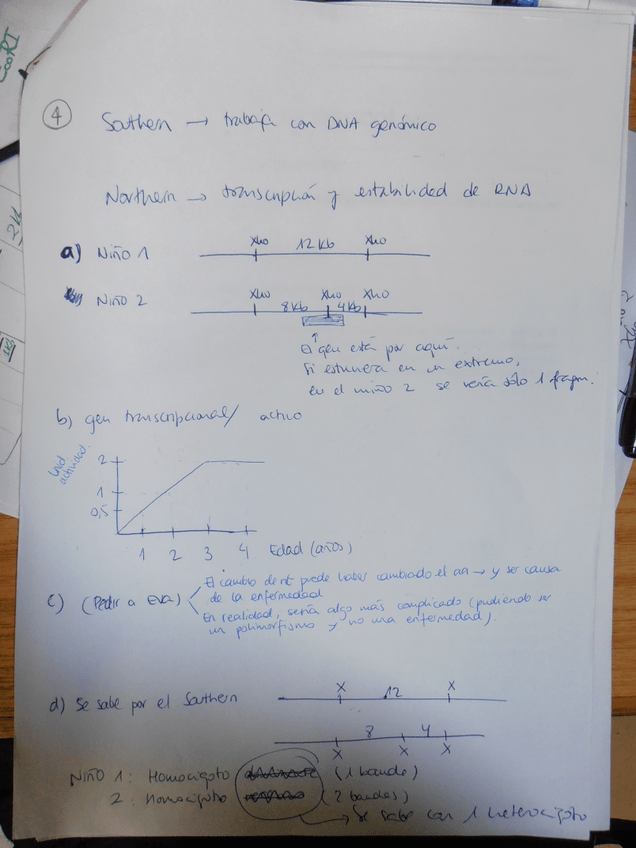 EcoRI
4
Southern → trabaja con DNA genómico
Northern → transcripción y estabilidad de RNA
a) Niño 1
Xho 12 Kb Xho
Niño 2
Xho 8Kb Xho 4Kb Xho
El gen está por aquí.
Si estuviera en un extremo,
en el niño 2 se vería sólo 1 fragm.
b) gen transcripcional/ activo
Unid actividad.
2
1
0,5
1 2 3 4 Edad (años)
c) (Pedir a Eva)
El cambio de nt puede haber cambiado el aa → y ser causa
de la enfermedad
En realidad, sería algo más complicado (pudiendo ser
un polimorfismo y no una enfermedad)
d) Se sabe por el Southern
X 12 X
8 4
X X X
Niño 1: Homocigoto (1 banda)
2: Homocigoto (2 bandas)
→ Se sabe con 1 heterocigoto